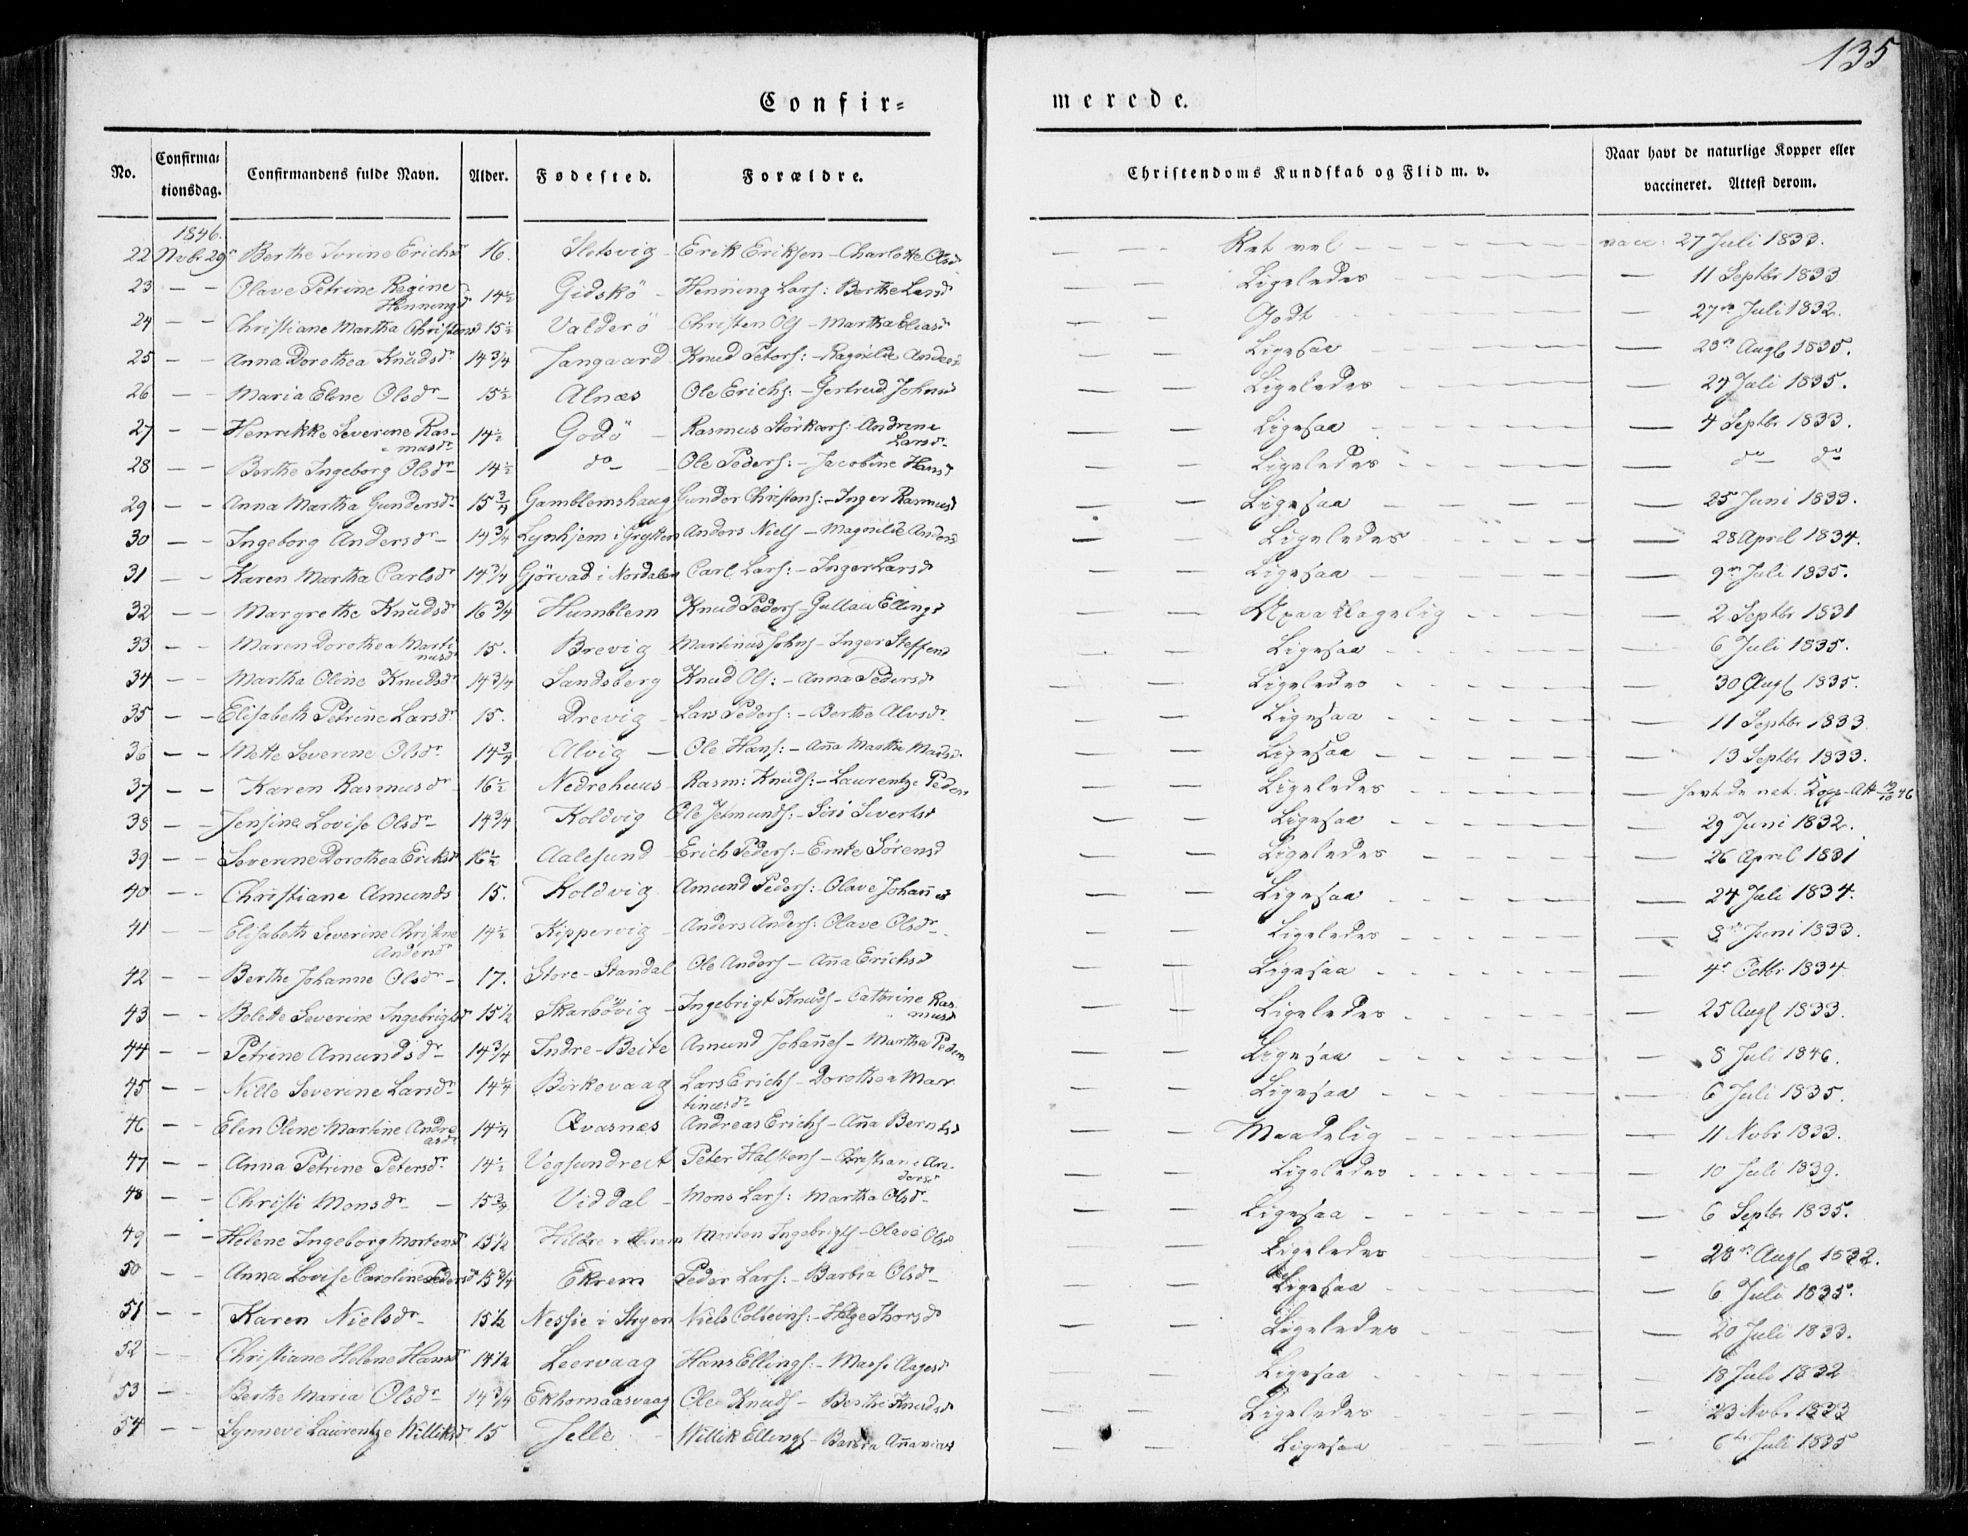 135
Confir=
merede.
No. Confirma=tionsdag. Confirmandens fulde Navn. Alder. Fødested. Forældre. Christendoms Kundskab og Flid m. v. Naar havt de naturlige Kopper eller vaccineret. Attest derom.
1846.
22 Nvbr 29 Berthe Ivrine Erichsdr 16. Sletsvig Erik Eriksen - Charlotte Olsdr — — Ret vel — vacc: 27 Juli 1833.
23 — — Olave Petrine Regine Henningsdr 14½ Gidskö Henning Lars: Berthe Larsdr — — Ligeledes — 11 Septbr 1833
24 — — Christiane Martha Christensdr 15½ Valderö Christen Ols - Martha Eliasdr — — Godt — 27de Juli 1832.
25 — — Anna Dorothea Knudsdr 14 3/4 Jangaard Knud Peters: - Ragnilde Andersdr — — Ligesaa — 28de Augs 1835.
26 — — Maria Elene Olsdr 15½ Alnæs Ole Erichs: - Gertrud Johnsdr — — Ligeledes — 24 Juli 1835.
27 — — Henrikke Severine Rasmusdr 14½ Godö Rasmus Störkers: Andrine Larsdr — — Ligesaa — 4 Septbr 1833.
28 — — Berthe Ingeborg Olsdr 14½ do Ole Peders: - Jacobine Hansdr — — Ligeledes — do do
29 — — Anna Martha Gundersdr 15 3/4 Gamblemshaug Gunder Christens: - Inger Rasmusdr — — Ligesaa — 25 Juni 1833.
30 — — Ingeborg Andersdr 14 3/4 Lynhjem i Grytten Anders Niels - Magnilde Andersdr — — Ligeledes — 28 April 1834.
31 — — Karen Martha Carlsdr 14 3/4 Gjörvad i Nordalen Carl Lars: - Inger Larsdr — — Ligesaa — 9de Juli 1835.
32 — — Margrethe Knudsdr 16 3/4 Humblem Knud Peders - Gullau Ellingsdr — — Upaaklagelig — 2 Septbr 1831
33 — — Maren Dorothea Martinusdr 15. Brevig Martinus Johns - Inger Steffensdr — — Ligesaa — 6 Juli 1835.
34 — — Martha Oline Knudsdr 14 3/4 Sandsberg Knud Ols: - Anna Pedersdr — — Ligeledes — 30 Augs 1835.
35 — — Elisabeth Petrine Larsdr 15. Drevig Lars Peders: - Berthe Alvsdr — — Ligesaa — 11 Septbr 1833
36 — — Mette Severine Olsdr 14 3/4 Alvig Ole Hans: - Aña Martha Madsdr — — Ligesaa — 13 Septbr 1833.
37 — — Karen Rasmusdr 16½ Nedrehuus Rasm: Knuds: - Laurentze Pedersdr — — Ligeledes — havt de nat. Kopp. Att 46
38 — — Jensine Lovise Olsdr 14 3/4 Koldvig Ole Jetmunds: - Siri Sivertsdr — — Ligesaa — 29 Juni 1832.
39 — — Severine Dorothea Eriksdr 16½ Aalesund Erich Peders: - Emte Sörensdr — — Ligeledes — 26 April 1831
40 — — Christiane Amunds 15. Koldvig Amund Peders: - Olave Johañesdr — — Ligesaa — 24 Juli 1834.
41 — — Elisabeth Severine Christine Andersdr 14½ Kippervig Anders Anders: Olave Olsdr — — Ligeledes — 8de Juni 1833.
42 — — Berthe Johanne Olsdr 17. Store-Standal Ole Anders - Aña Erichsdr — — Ligesaa — 4de Octbr 1834
43 — — Bolette Severine Ingebrigtsdr 15 1/2 Skarbövig Ingebrigt Knuds - Cathrine Rasmusdr — — Ligeledes — 25 Augs 1833.
44 — — Petrine Amundsdr 14 3/4 Indre-Beite Amund Johañes - Martha Pedersdr — — Ligesaa — 8 Juli 1846.
45 — — Nille Severine Larsdr 14¼ Birkevaag Lars Erichs - Dorothea Martinusdr — — Ligesaa — 6 Juli 1835.
46 — — Elen Oline Martine Andreasdr 14¼ Qvasnæs Andreas Erichs - Aña Berntsdr — — Maadelig — 11 Nvbr 1833.
47 — — Anna Petrine Petersdr 14½ Vegsundreit Peter Halstens - Christiane Andersdr — — Ligeledes — 10 Juli 1839.
48 — — Christi Monsdr 15 3/4 Viddal Mons Lars: Martha Olsdr — — Ligesaa — 6 Septbr 1835.
49 — — Helene Ingeborg Mortensdr 15 1/2 Hildre i Harem Morten Ingebrigts - Olave Olsdr — — Ligeledes — 28de Augs 1832.
50 — — Anna Lovise Caroline Pedersdr 15 3/4 Ekrem Peder Lars: - Barbra Olsdr — — Ligesaa — 6 Juli 1835.
51 — — Karen Nielsdr 15 1/2 Nessie i Stryen Niels Colbeins: - Helge Thorsdr — — Ligeledes — 20 Juli 1833.
52 — — Christiane Helene Hansdr 14 1/2 Leervaag Hans Ellings: - Massi Aagesdr — — Ligesaa — 18 Juli 1832
53 — — Berthe Maria Olsdr 14 3/4 Ekhornaasvaag Ole Knuds - Berthe Knudsdr — — Ligeledes — 23 Nvbr 1833
54 — — Synneve Laurentze Williksdr 15 Jelle Willik Ellings - Barbra Añaniasdr — — Ligesaa — 6te Juli 1835